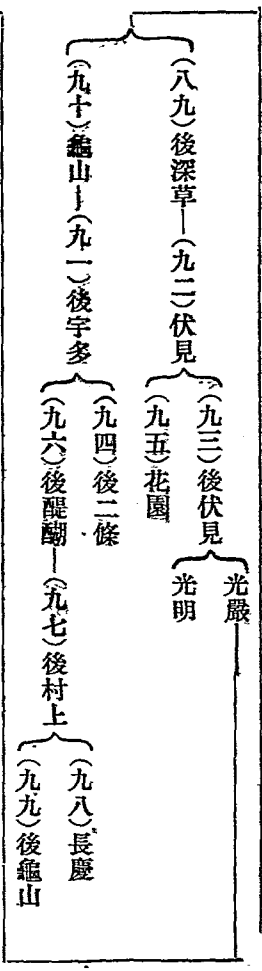 (八九)後深草—(九二)伏見
(九三)後伏見
光嚴
光明
(九五)花園
(九十)龜山—(九一)後宇多
(九四)後二條
(九六)後醍醐—(九七)後村上
(九八)長慶
(九九)後龜山